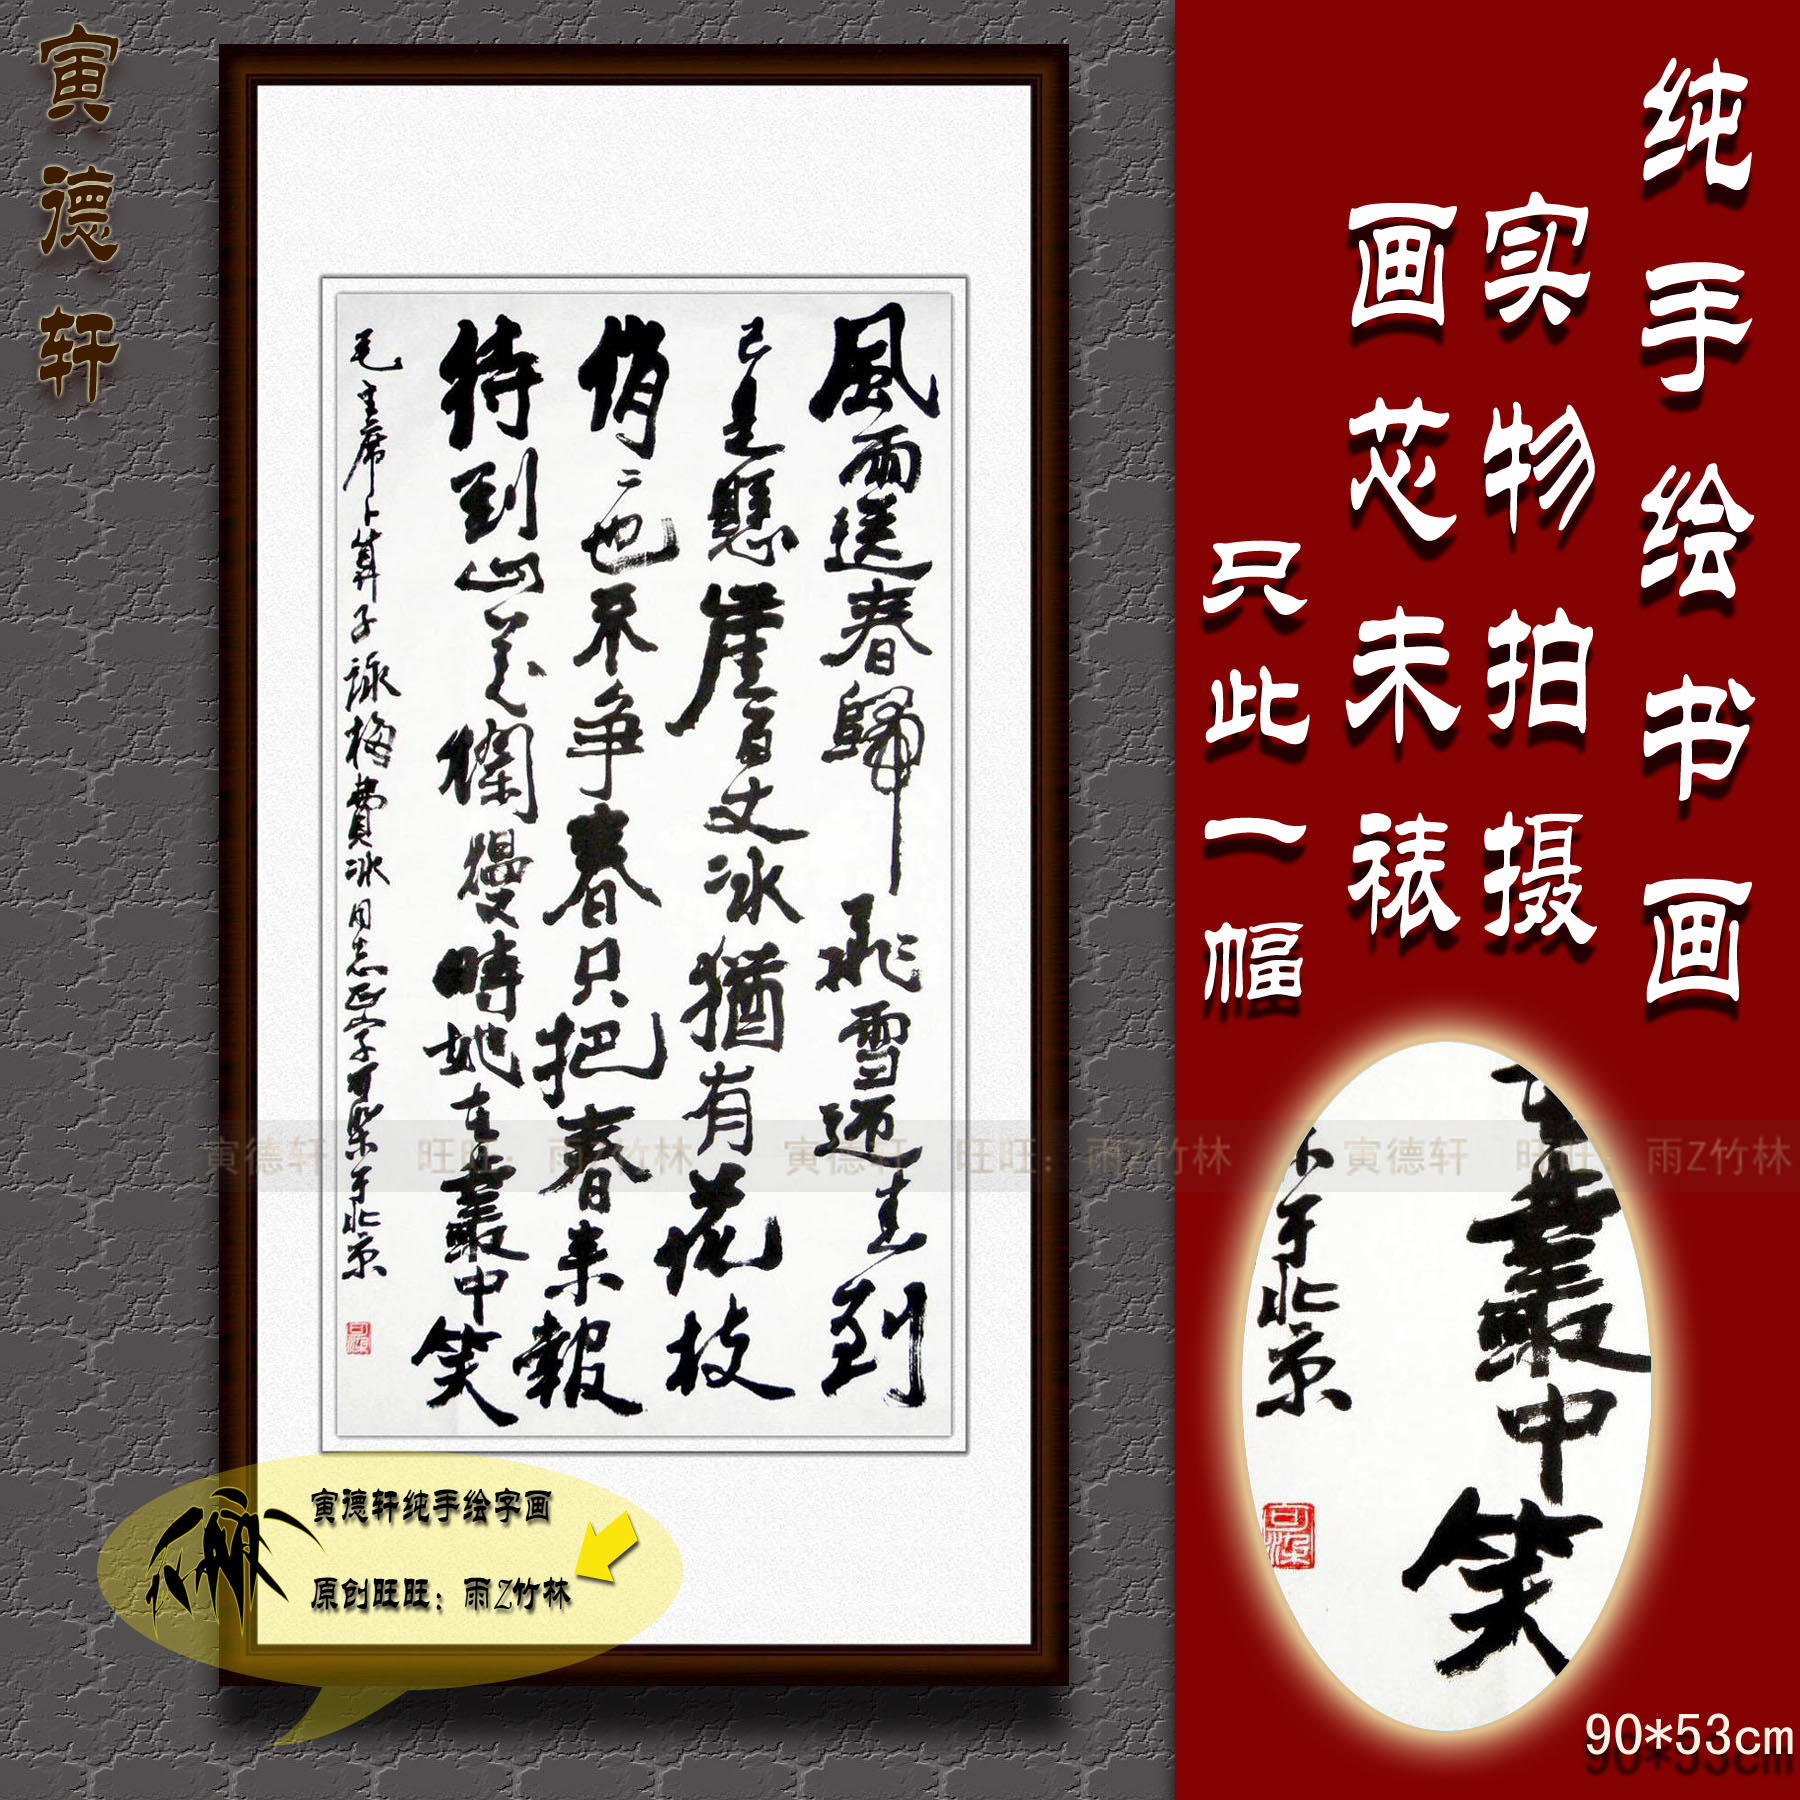 寅德轩
風雨送春歸飛雪迎春到
已是懸崖百丈冰猶有花枝
俏二也不争春只把春来報
待到山花爛熳時她在叢中笑
毛主席卜算子詠梅費冰同志正字可染于北京
纯手绘书画
实物拍摄
画芯未裱
只此一幅
于北京
叢中笑
90*53cm
寅德轩纯手绘字画
原创旺旺：雨Z竹林
寅德轩 旺旺：雨Z竹林 寅德轩 旺旺：雨Z竹林 寅德轩 旺旺：雨Z竹林